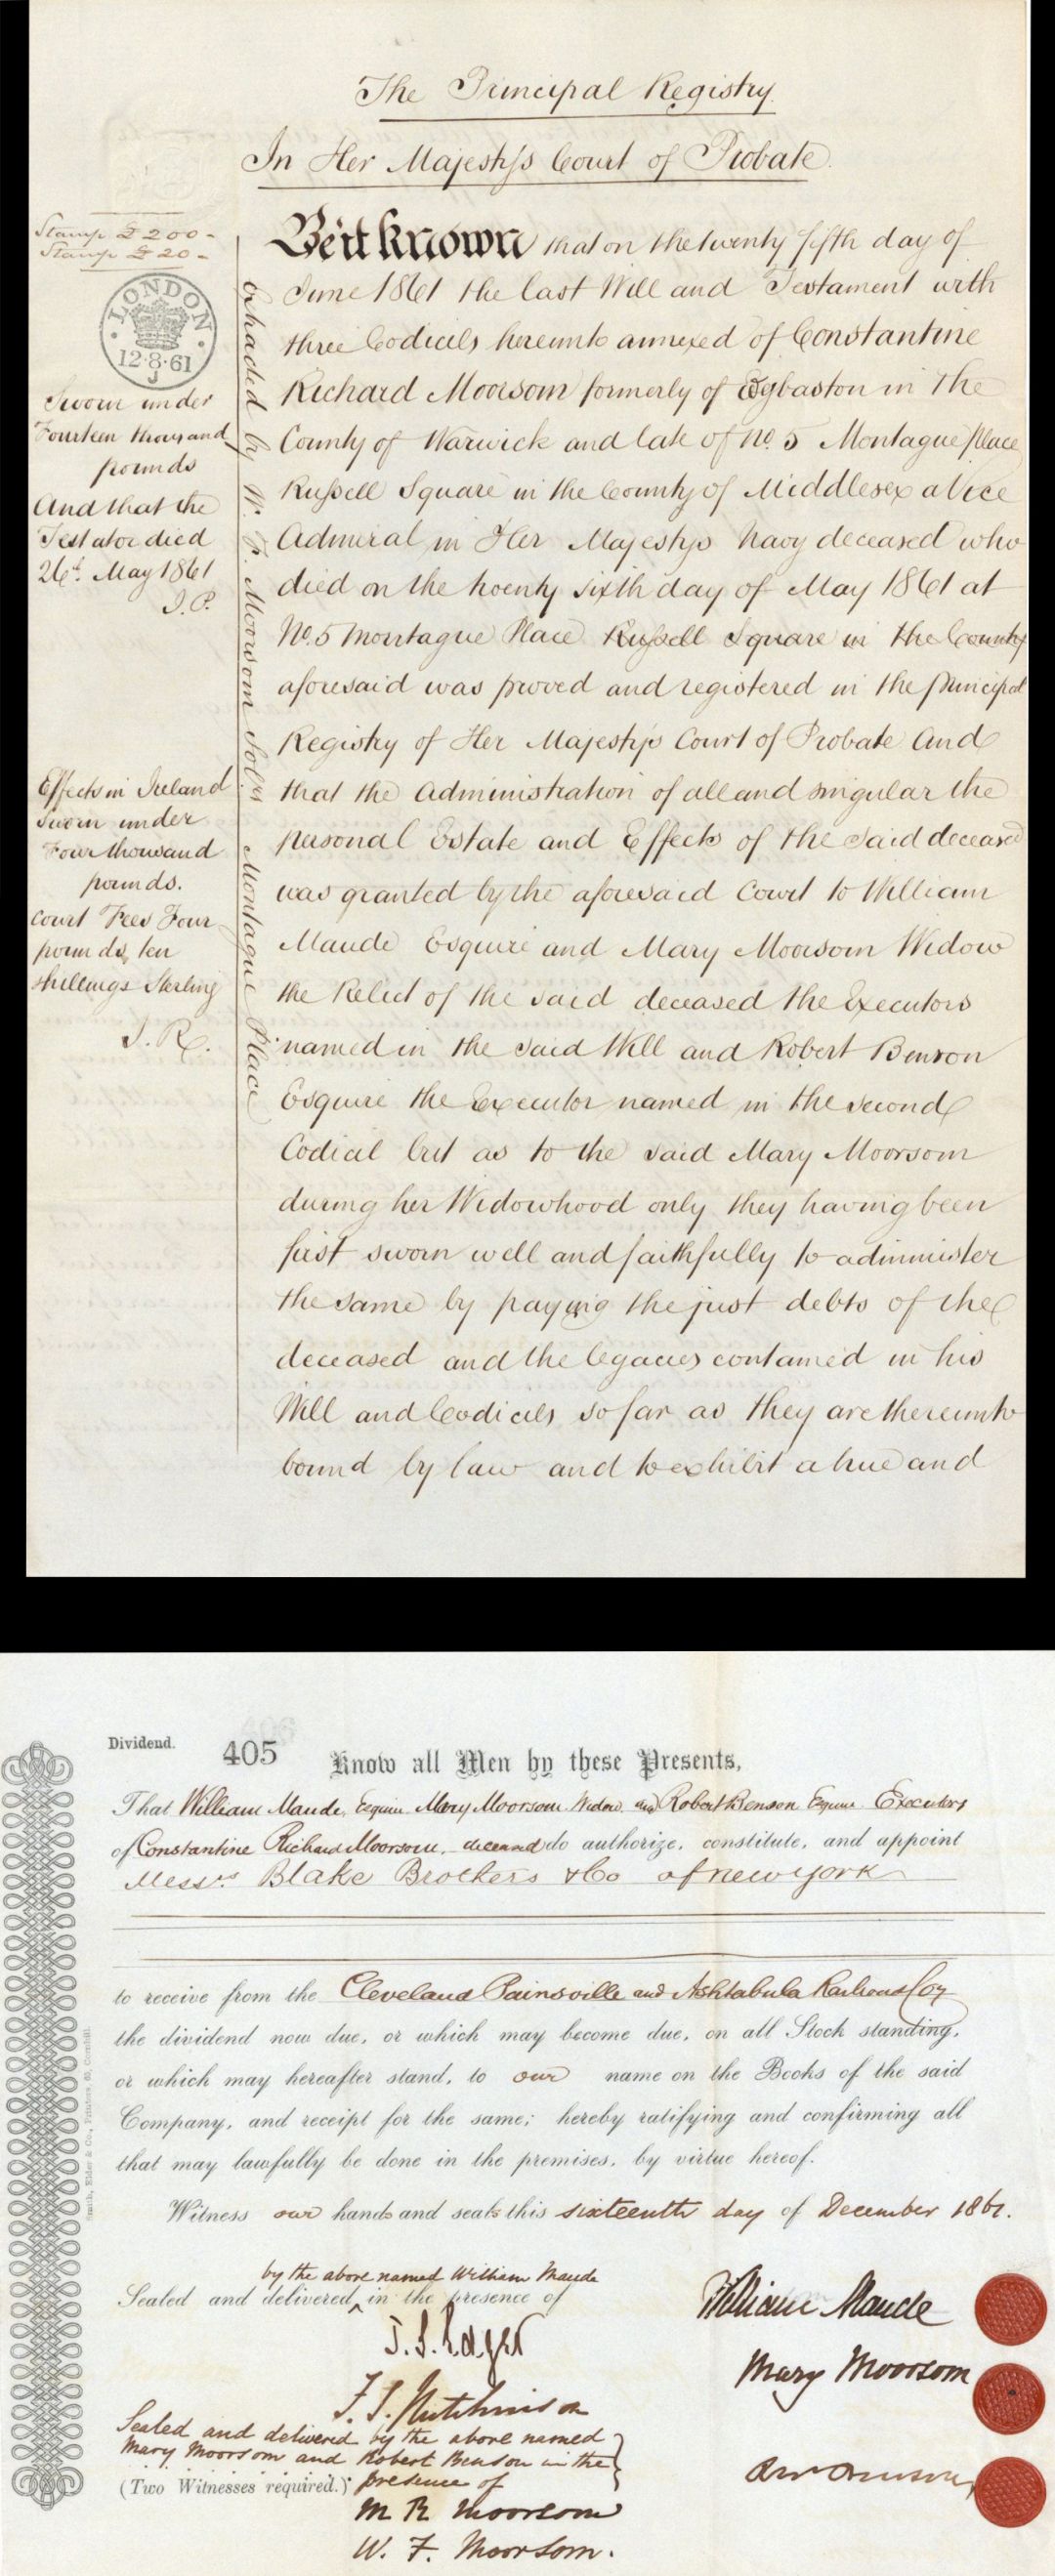 The Principal Registry
In Her Majesty's Court of Probate.
Stamp £200-
Stamp £20-
LONDON
12·8·61
J
Sworn under
Fourteen thousand
pounds
And that the
Testator died
26th May 1861
Effects in Ireland
Sworn under
Four thousand
pounds.
Court Fees Four
pounds, ten
shillings Sterling
Extracted by W. F. Moorsom Solr Montague Place
Be it known that on the twenty fifth day of
June 1861 the last Will and Testament with
three Codicils hereunto annexed of Constantine
Richard Moorsom formerly of Egbaston in the
County of Warwick and late of No. 5 Montague Place
Russell Square in the County of Middlesex a Vice
Admiral in Her Majestys Navy deceased who
died on the twenty sixth day of May 1861 at
No. 5 Montague Place Russell Square in the County
aforesaid was proved and registered in the principal
Registry of Her Majestys Court of Probate And
that the Administration of all and singular the
personal Estate and Effects of the said deceased
was granted by the aforesaid Court to William
Maude Esquire and Mary Moorsom Widow
the Relict of the said deceased the Executors
named in the said Will and Robert Benson
Esquire the Executor named in the second
Codicil but as to the said Mary Moorsom
during her Widowhood only they having been
first sworn well and faithfully to administer
the same by paying the just debts of the
deceased and the legacies contained in his
Will and Codicils so far as they are thereunto
bound by law and to exhibit a true and
Dividend.
405
Know all Men by these Presents,
That William Maude, Esquire Mary Moorsom Widow and Robert Benson Esquire Executors
of Constantine Richard Moorsom, deceased do authorize, constitute, and appoint
Messrs Blake Brothers & Co of new york
to receive from the Cleveland Painsville and Ashtabula Railroad Coy
the dividend now due, or which may become due, on all Stock standing,
or which may hereafter stand, to our name on the Books of the said
Company, and receipt for the same; hereby ratifying and confirming all
that may lawfully be done in the premises, by virtue hereof.
Witness our hands and seals this sixteenth day of December 1861.
by the above named William Maude
Sealed and delivered, in the presence of
William Maude
Mary Moorsom
F. J. Hutchinson
Sealed and delivered by the above named
Mary Moorsom and Robert Benson in the
(Two Witnesses required.) presence of
M R Moorsom
W. F. Moorsom.
Smith, Elder & Co., Printers, 65, Cornhill.